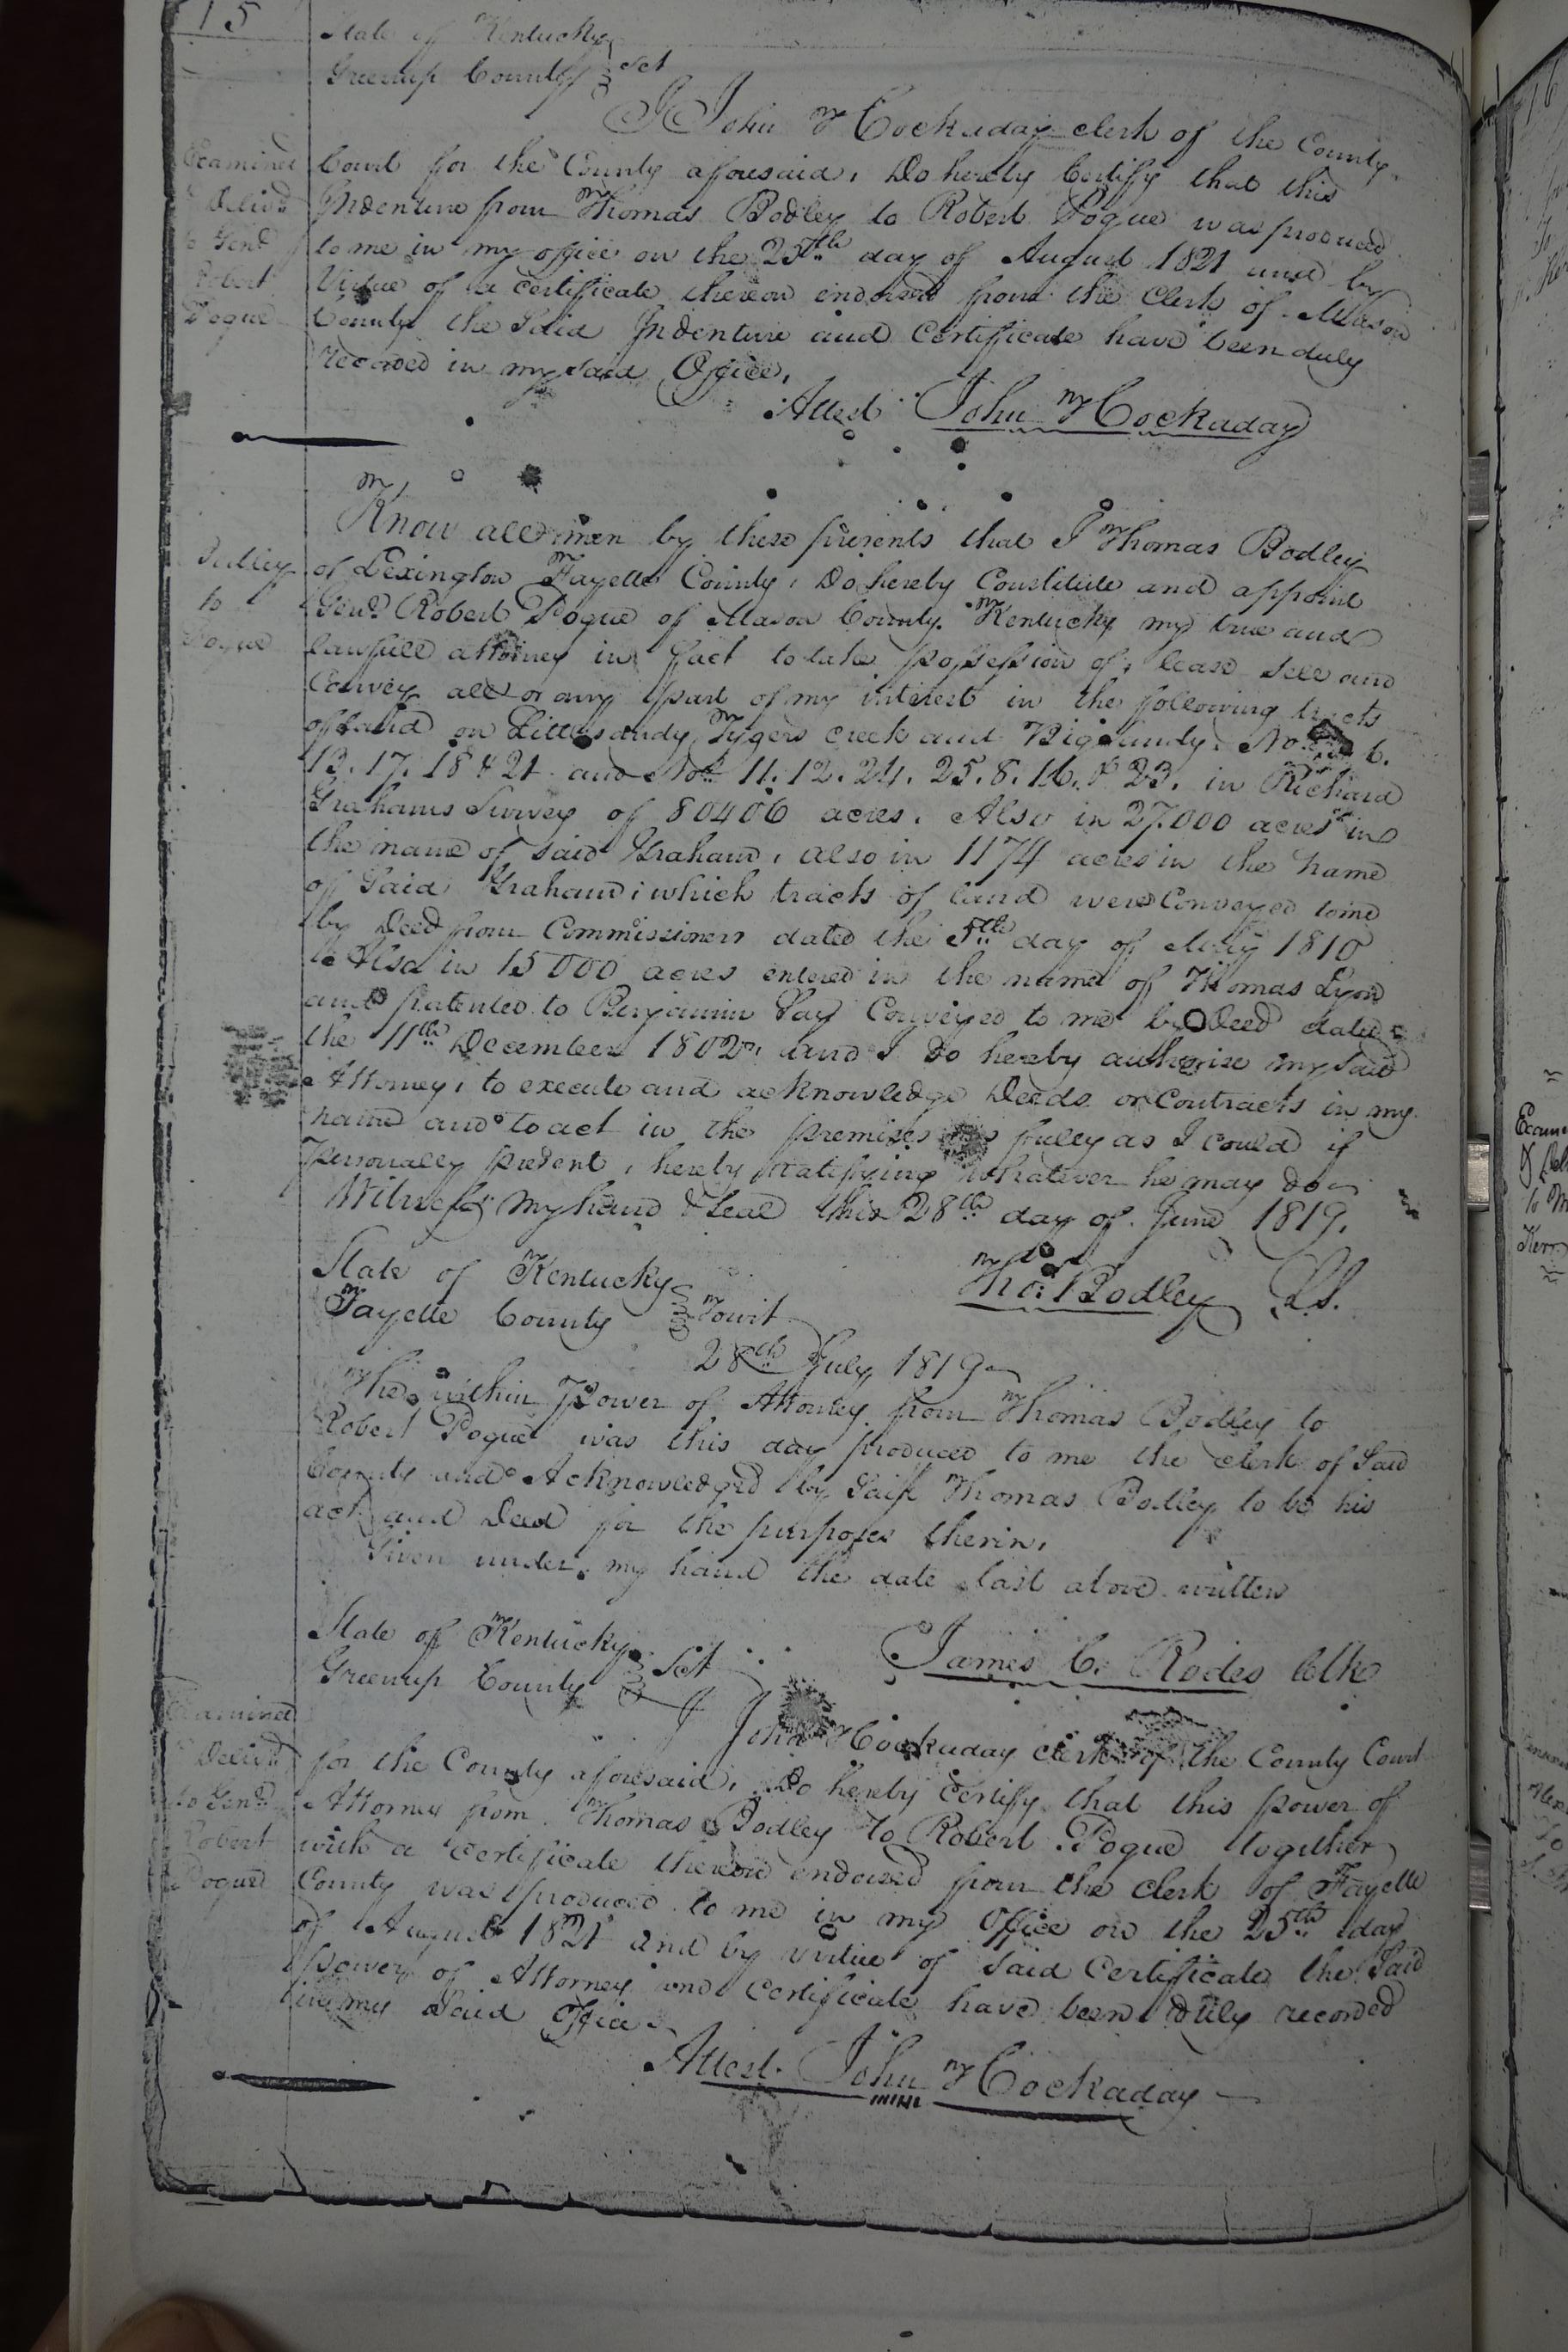 15
State of Kentucky
Greenup County Sct
I John Hockaday clerk of the County
Court for the County aforesaid, Do hereby Certify that this
Indenture from Thomas Bodley to Robert Pogue was produced
to me in my office on the 25th day of August 1821 and by
Virtue of a certificate thereon endorsed from the Clerk of Mason
County the Said Indenture and Certificate have been duly
recorded in my said Office,
Attest John Hockaday
Examined
& Delivd
to Genl
Robert
Pogue
Know all men by these presents that I Thomas Bodley
of Lexington Fayette County, Do hereby Constitute and appoint
Genl Robert Pogue of Mason County Kentucky my true and
lawfull attorney in fact to take possession of, lease sell and
Convey all or any part of my interest in the following tracts
of land on Little sandy, Tygers creek and Big sandy. No 6.
13. 17. 18 & 21 and Nos 11. 12. 24. 25. 8. 16. & 23. in Richard
Grahams Survey of 80406 acres. Also in 27.000 acres in
the name of said Graham, also in 1174 acres in the name
of Said Graham; which tracts of land were Conveyed to me
by Deed from Commissioners dated the 5th day of May 1810
Also in 15000 acres entered in the name of Thomas Lyon
and Patented to Benjamin Say Conveyed to me by Deed dated
the 11th December 1802, and I do hereby authorise my Said
Attorney, to execute and acknowledge Deeds or Contracts in my
name and to act in the premises as fully as I could if
Personally present, hereby ratifying whatever he may do
Witness my hand & Seal this 28th day of June 1819.
Tho: Bodley LS.
Bodley
to
Pogue
State of Kentucky
Fayette County Towit
28th July 1819
The within Power of Attorney from Thomas Bodley to
Robert Pogue was this day produced to me the clerk of Said
County and Acknowledged by Said Thomas Bodley to be his
act and Deed for the purposes therin,
Given under my hand the date last above written
James C. Rodes Clk
State of Kentucky
Greenup County Sct
I John Hockaday clerk of the County Court
for the County aforesaid, Do hereby Certify that this power of
Attorney from Thomas Bodley to Robert Pogue together
with a Certificate thereon endorsed from the clerk of Fayette
County was produced to me in my Office on the 25th day
of August 1821 and by virtue of Said Certificate the Said
power of Attorney and Certificate have been duly recorded
in my Said Office
Attest. John Hockaday
Examined
Delivd
to Genl
Robert
Pogue